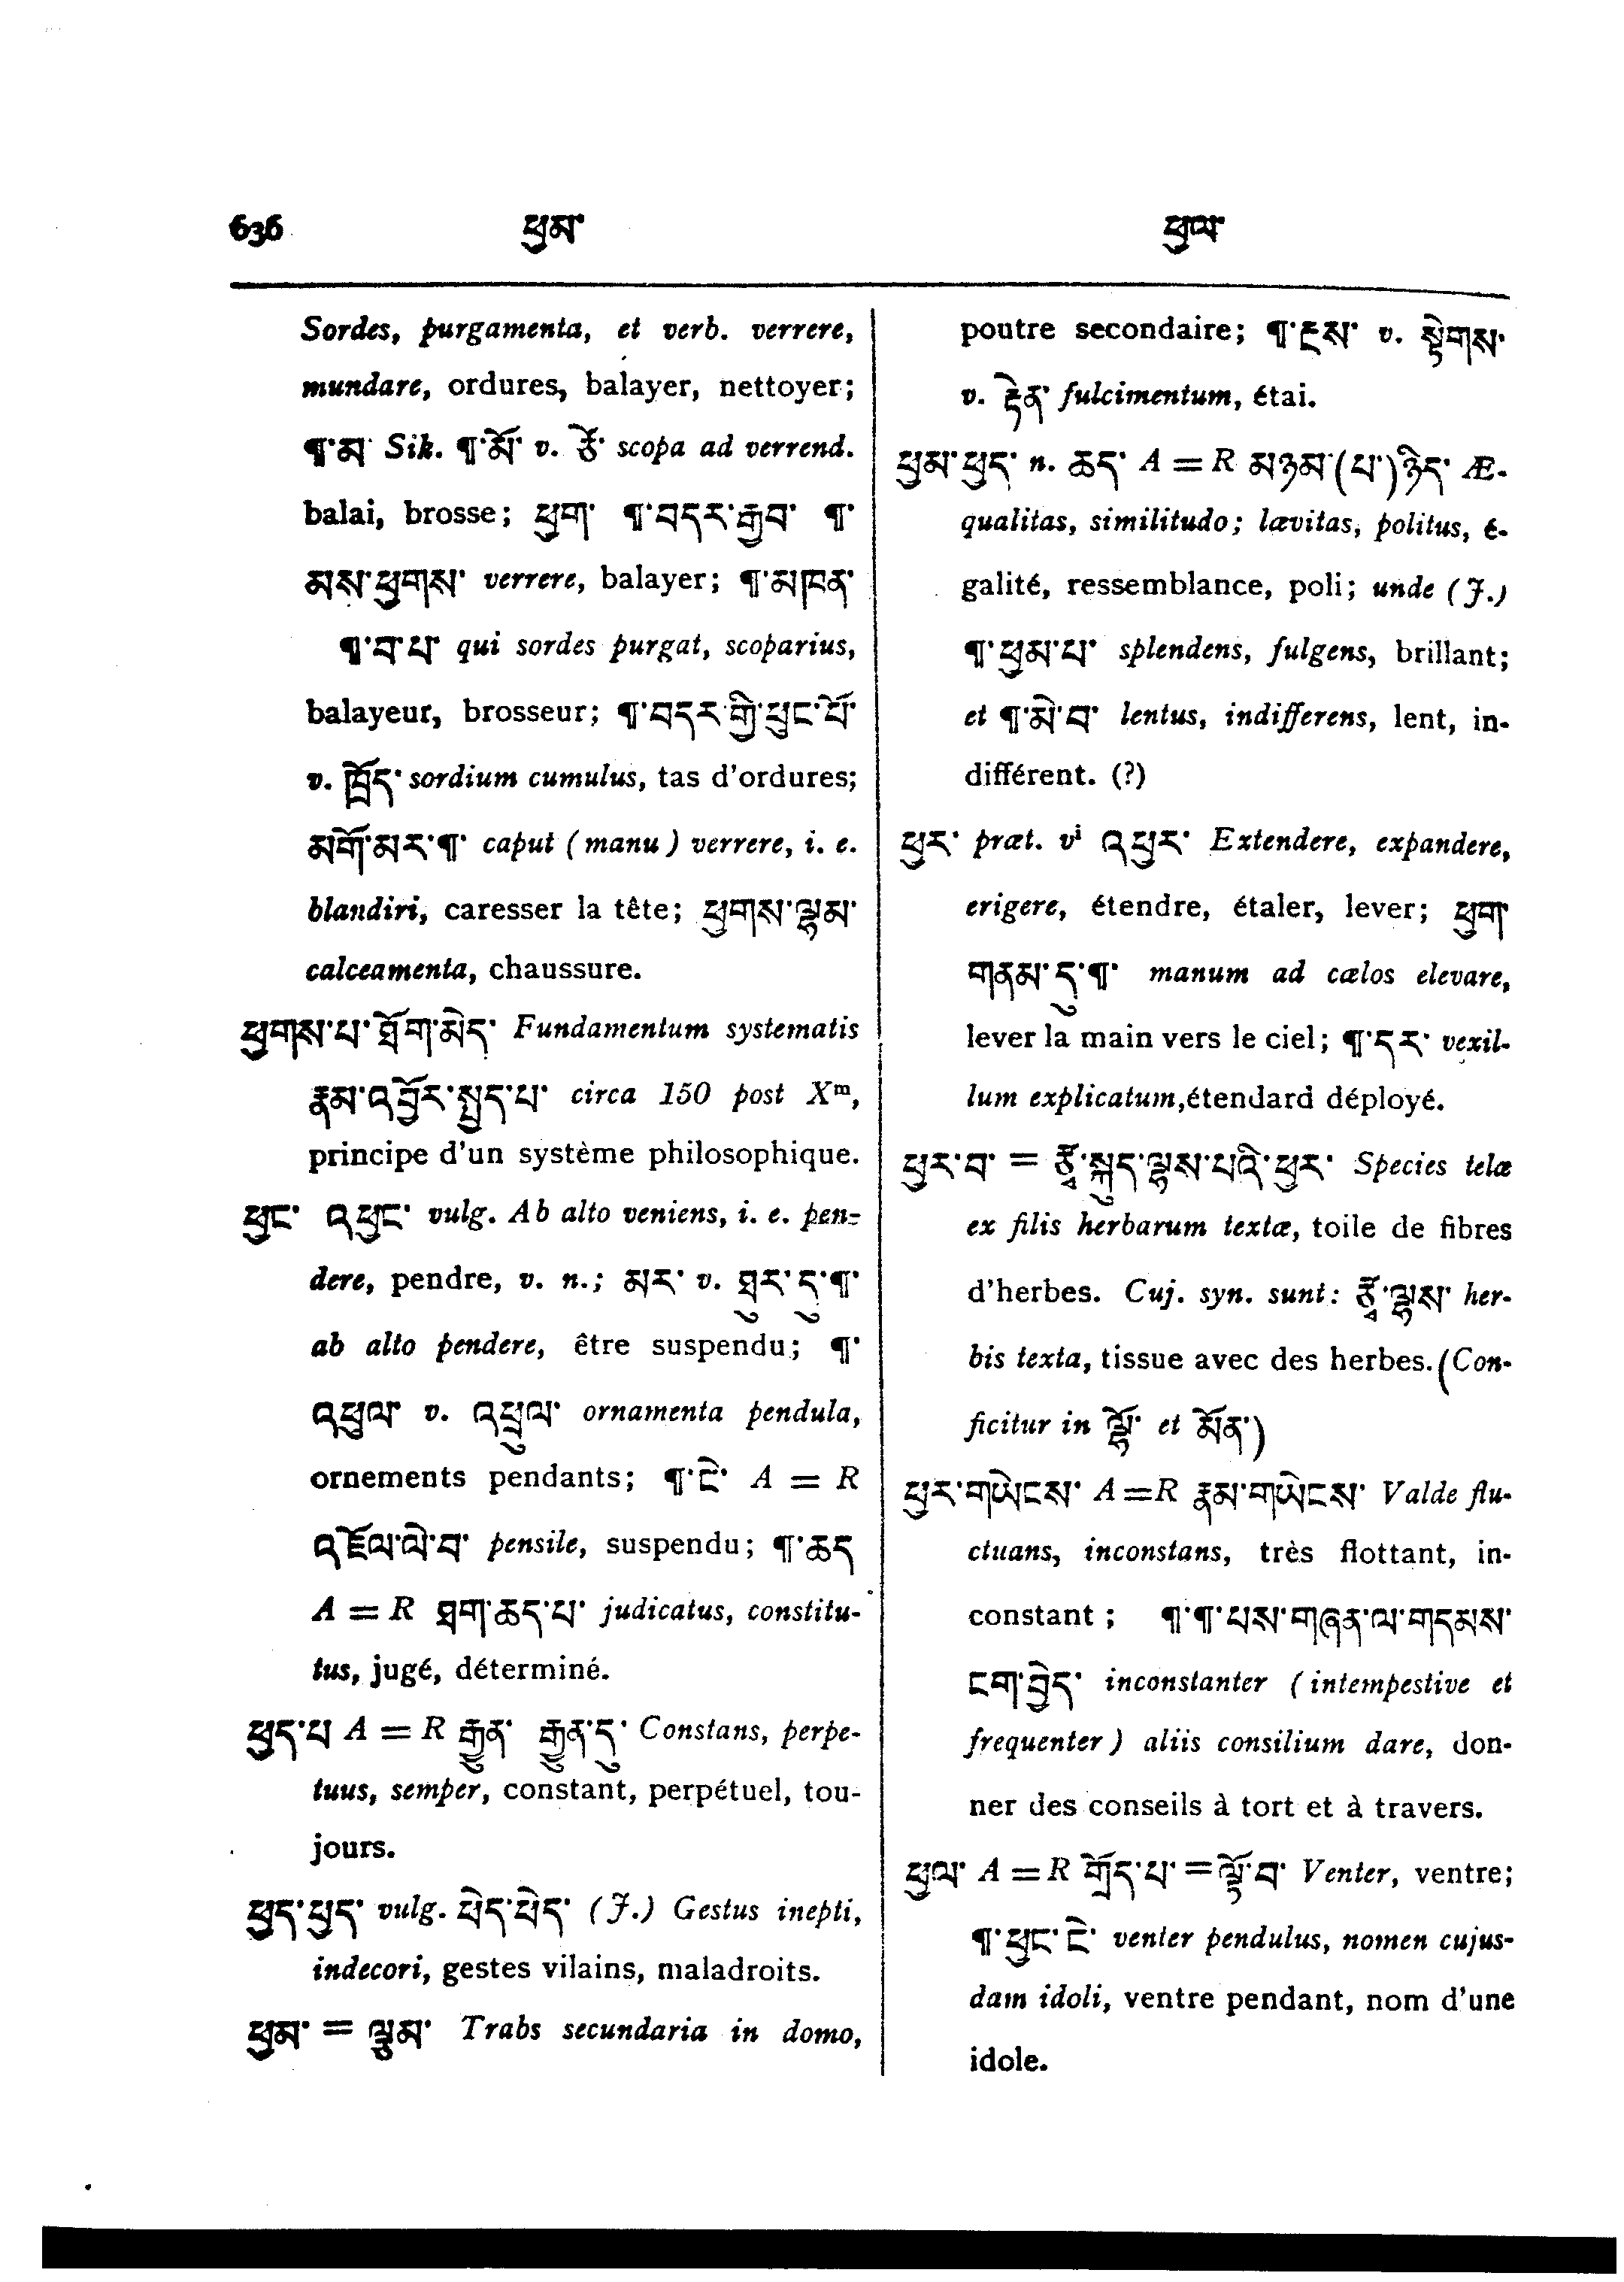 636 ཕྱམ་ ཕྱལ་
Sordes, purgamenta, et verb. verrere,
mundare, ordures, balayer, nettoyer;
¶་མ་ Sik. ¶་མོ་ v. ཙོ་ scopa ad verrend.
balai, brosse; ཕྱག་ ¶་བདར་རྒྱབ་ ¶་
མས་ཕྱགས་ verrere, balayer; ¶་མཁན་
¶་བ་པ་ qui sordes purgat, scoparius,
balayeur, brosseur; ¶་བདར་གྱི་ཕུང་པོ་
v. ཁྲོད་ sordium cumulus, tas d'ordures;
མགོ་མར་¶་ caput (manu) verrere, i. e.
blandiri, caresser la tête; ཕྱགས་ལྷམ་
calceamenta, chaussure.
ཕྱགས་པ་ཐོག་མེད་ Fundamentum systematis
རྣམ་འབྱོར་སྤྱད་པ་ circa 150 post Xᵐ,
principe d'un système philosophique.
ཕྱང་ འཕྱང་ vulg. Ab alto veniens, i. e. pen-
dere, pendre, v. n.; མར་ v. ཐུར་དུ་¶་
ab alto pendere, être suspendu; ¶་
འཕྱལ་ v. འཕྲུལ་ ornamenta pendula,
ornements pendants; ¶་ངེ་ A = R
འཇོལ་ལེ་བ་ pensile, suspendu; ¶་ཆད
A = R ཐག་ཆད་པ་ judicatus, constitu-
tus, jugé, déterminé.
ཕྱད་པ A = R རྒྱུན་ རྒྱུན་དུ་ Constans, perpe-
tuus, semper, constant, perpétuel, tou-
jours.
ཕྱད་ཕྱད་ vulg. ཕེད་ཕེད་ (J.) Gestus inepti,
indecori, gestes vilains, maladroits.
ཕྱམ་ = ལྕམ་ Trabs secundaria in domo,
poutre secondaire; ¶་རྫས་ v. སྟེགས་
v. རྟེན་ fulcimentum, étai.
ཕྱམ་ཕྱད་ n. ཆད་ A = R མཉམ་(པ་)ཉིད་ Æ-
qualitas, similitudo; lævitas, politus, é-
galité, ressemblance, poli; unde (J.)
¶་ཕྱམ་པ་ splendens, fulgens, brillant;
et ¶་མེ་བ་ lentus, indifferens, lent, in-
différent. (?)
ཕྱར་ præt. vⁱ འཕྱར་ Extendere, expandere,
erigere, étendre, étaler, lever; ཕྱག་
གནམ་དུ་¶་ manum ad cælos elevare,
lever la main vers le ciel; ¶་དར་ vexil-
lum explicatum,étendard déployé.
ཕྱར་བ་ = རྩྭ་སྐུད་ལྷས་པའི་ཕྱར་ Species telæ
ex filis herbarum textæ, toile de fibres
d'herbes. Cuj. syn. sunt: རྩྭ་ལྷས་ her-
bis texta, tissue avec des herbes. (Con-
ficitur in ལྷོ་ et མོན་)
ཕྱར་གཡེངས་ A = R རྣམ་གཡེངས་ Valde flu-
ctuans, inconstans, très flottant, in-
constant; ¶་¶་པས་གཞན་ལ་གདམས་
ངག་བྱེད་ inconstanter (intempestive et
frequenter) aliis consilium dare, don-
ner des conseils à tort et à travers.
ཕྱལ་ A = R གྲོད་པ་ = ལྟོ་བ་ Venter, ventre;
¶་ཕྱང་ངེ་ venter pendulus, nomen cujus-
dam idoli, ventre pendant, nom d'une
idole.